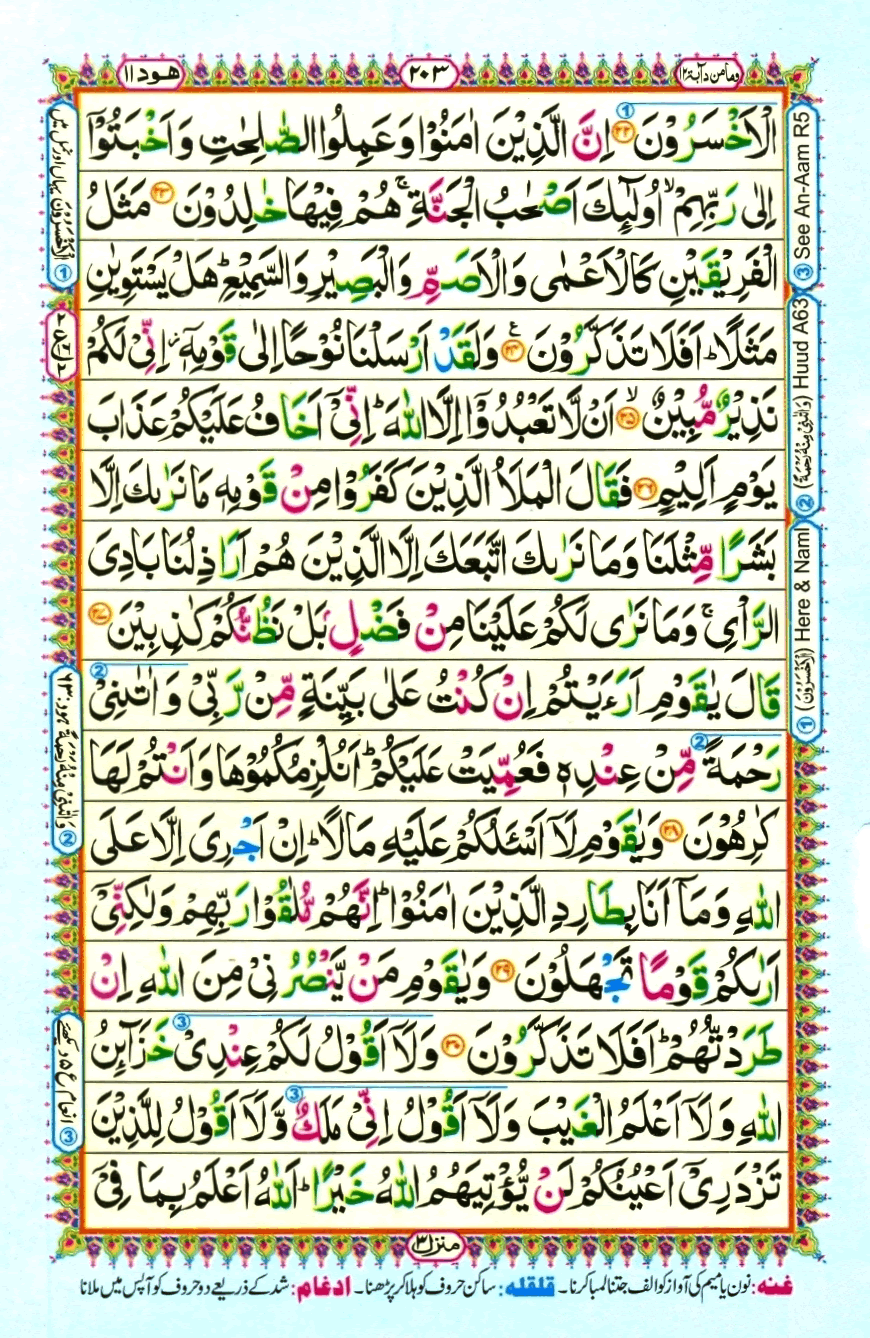 وما من دآبة ۱۲
۲۰۳
هود ۱۱
الْاَخْسَرُوْنَ ﴿۲۲﴾ اِنَّ الَّذِيْنَ اٰمَنُوْا وَعَمِلُوا الصّٰلِحٰتِ وَاَخْبَتُوْۤا
اِلٰى رَبِّهِمْ ۙ اُولٰٓئِكَ اَصْحٰبُ الْجَنَّةِ ۚ هُمْ فِيْهَا خٰلِدُوْنَ ﴿۲۳﴾ مَثَلُ
الْفَرِيْقَيْنِ كَالْاَعْمٰى وَالْاَصَمِّ وَالْبَصِيْرِ وَالسَّمِيْعِ ؕ هَلْ يَسْتَوِيٰنِ
مَثَلًا ؕ اَفَلَا تَذَكَّرُوْنَ ﴿۲۴﴾ وَلَقَدْ اَرْسَلْنَا نُوْحًا اِلٰى قَوْمِهٖۤ ؗ اِنِّيْ لَكُمْ
نَذِيْرٌ مُّبِيْنٌ ﴿۲۵﴾ ۙ اَنْ لَّا تَعْبُدُوْۤا اِلَّا اللّٰهَ ؕ اِنِّيْۤ اَخَافُ عَلَيْكُمْ عَذَابَ
يَوْمٍ اَلِيْمٍ ﴿۲۶﴾ فَقَالَ الْمَلَاُ الَّذِيْنَ كَفَرُوْا مِنْ قَوْمِهٖ مَا نَرٰىكَ اِلَّا
بَشَرًا مِّثْلَنَا وَمَا نَرٰىكَ اتَّبَعَكَ اِلَّا الَّذِيْنَ هُمْ اَرَاذِلُنَا بَادِيَ
الرَّاْيِ ۚ وَمَا نَرٰى لَكُمْ عَلَيْنَا مِنْ فَضْلٍۭ بَلْ نَظُنُّكُمْ كٰذِبِيْنَ ﴿۲۷﴾
قَالَ يٰقَوْمِ اَرَءَيْتُمْ اِنْ كُنْتُ عَلٰى بَيِّنَةٍ مِّنْ رَّبِّيْ وَاٰتٰىنِيْ
رَحْمَةً مِّنْ عِنْدِهٖ فَعُمِّيَتْ عَلَيْكُمْ ؕ اَنُلْزِمُكُمُوْهَا وَاَنْتُمْ لَهَا
كٰرِهُوْنَ ﴿۲۸﴾ وَيٰقَوْمِ لَاۤ اَسْـَٔلُكُمْ عَلَيْهِ مَالًا ؕ اِنْ اَجْرِيَ اِلَّا عَلَى
اللّٰهِ وَمَاۤ اَنَا بِطَارِدِ الَّذِيْنَ اٰمَنُوْا ؕ اِنَّهُمْ مُّلٰقُوْا رَبِّهِمْ وَلٰكِنِّيْۤ
اَرٰىكُمْ قَوْمًا تَجْهَلُوْنَ ﴿۲۹﴾ وَيٰقَوْمِ مَنْ يَّنْصُرُنِيْ مِنَ اللّٰهِ اِنْ
طَرَدْتُّهُمْ ؕ اَفَلَا تَذَكَّرُوْنَ ﴿۳۰﴾ وَلَاۤ اَقُوْلُ لَكُمْ عِنْدِيْ خَزَآئِنُ
اللّٰهِ وَلَاۤ اَعْلَمُ الْغَيْبَ وَلَاۤ اَقُوْلُ اِنِّيْ مَلَكٌ وَّلَاۤ اَقُوْلُ لِلَّذِيْنَ
تَزْدَرِيْۤ اَعْيُنُكُمْ لَنْ يُّؤْتِيَهُمُ اللّٰهُ خَيْرًا ؕ اَللّٰهُ اَعْلَمُ بِمَا فِيْۤ
③ See An-Aam R5
② (وَاٰتٰىنِيْ مِنْهُ رَحْمَةً) Huud A63
① (اَلْاَخْسَرُوْنَ) Here & Naml
① اَلْاَخْسَرُوْنَ یہاں اور نمل میں
② وَاٰتٰىنِيْ مِنْهُ رَحْمَةً ہود: ۶۳
③ انعام ع ۵ دیکھئے
منزل ۳
غنه: نون یا میم کی آواز کو الف جتنا لمبا کرنا۔ قلقله: ساکن حروف کو ہلا کر پڑھنا۔ ادغام: شد کے ذریعے دو حروف کو آپس میں ملانا